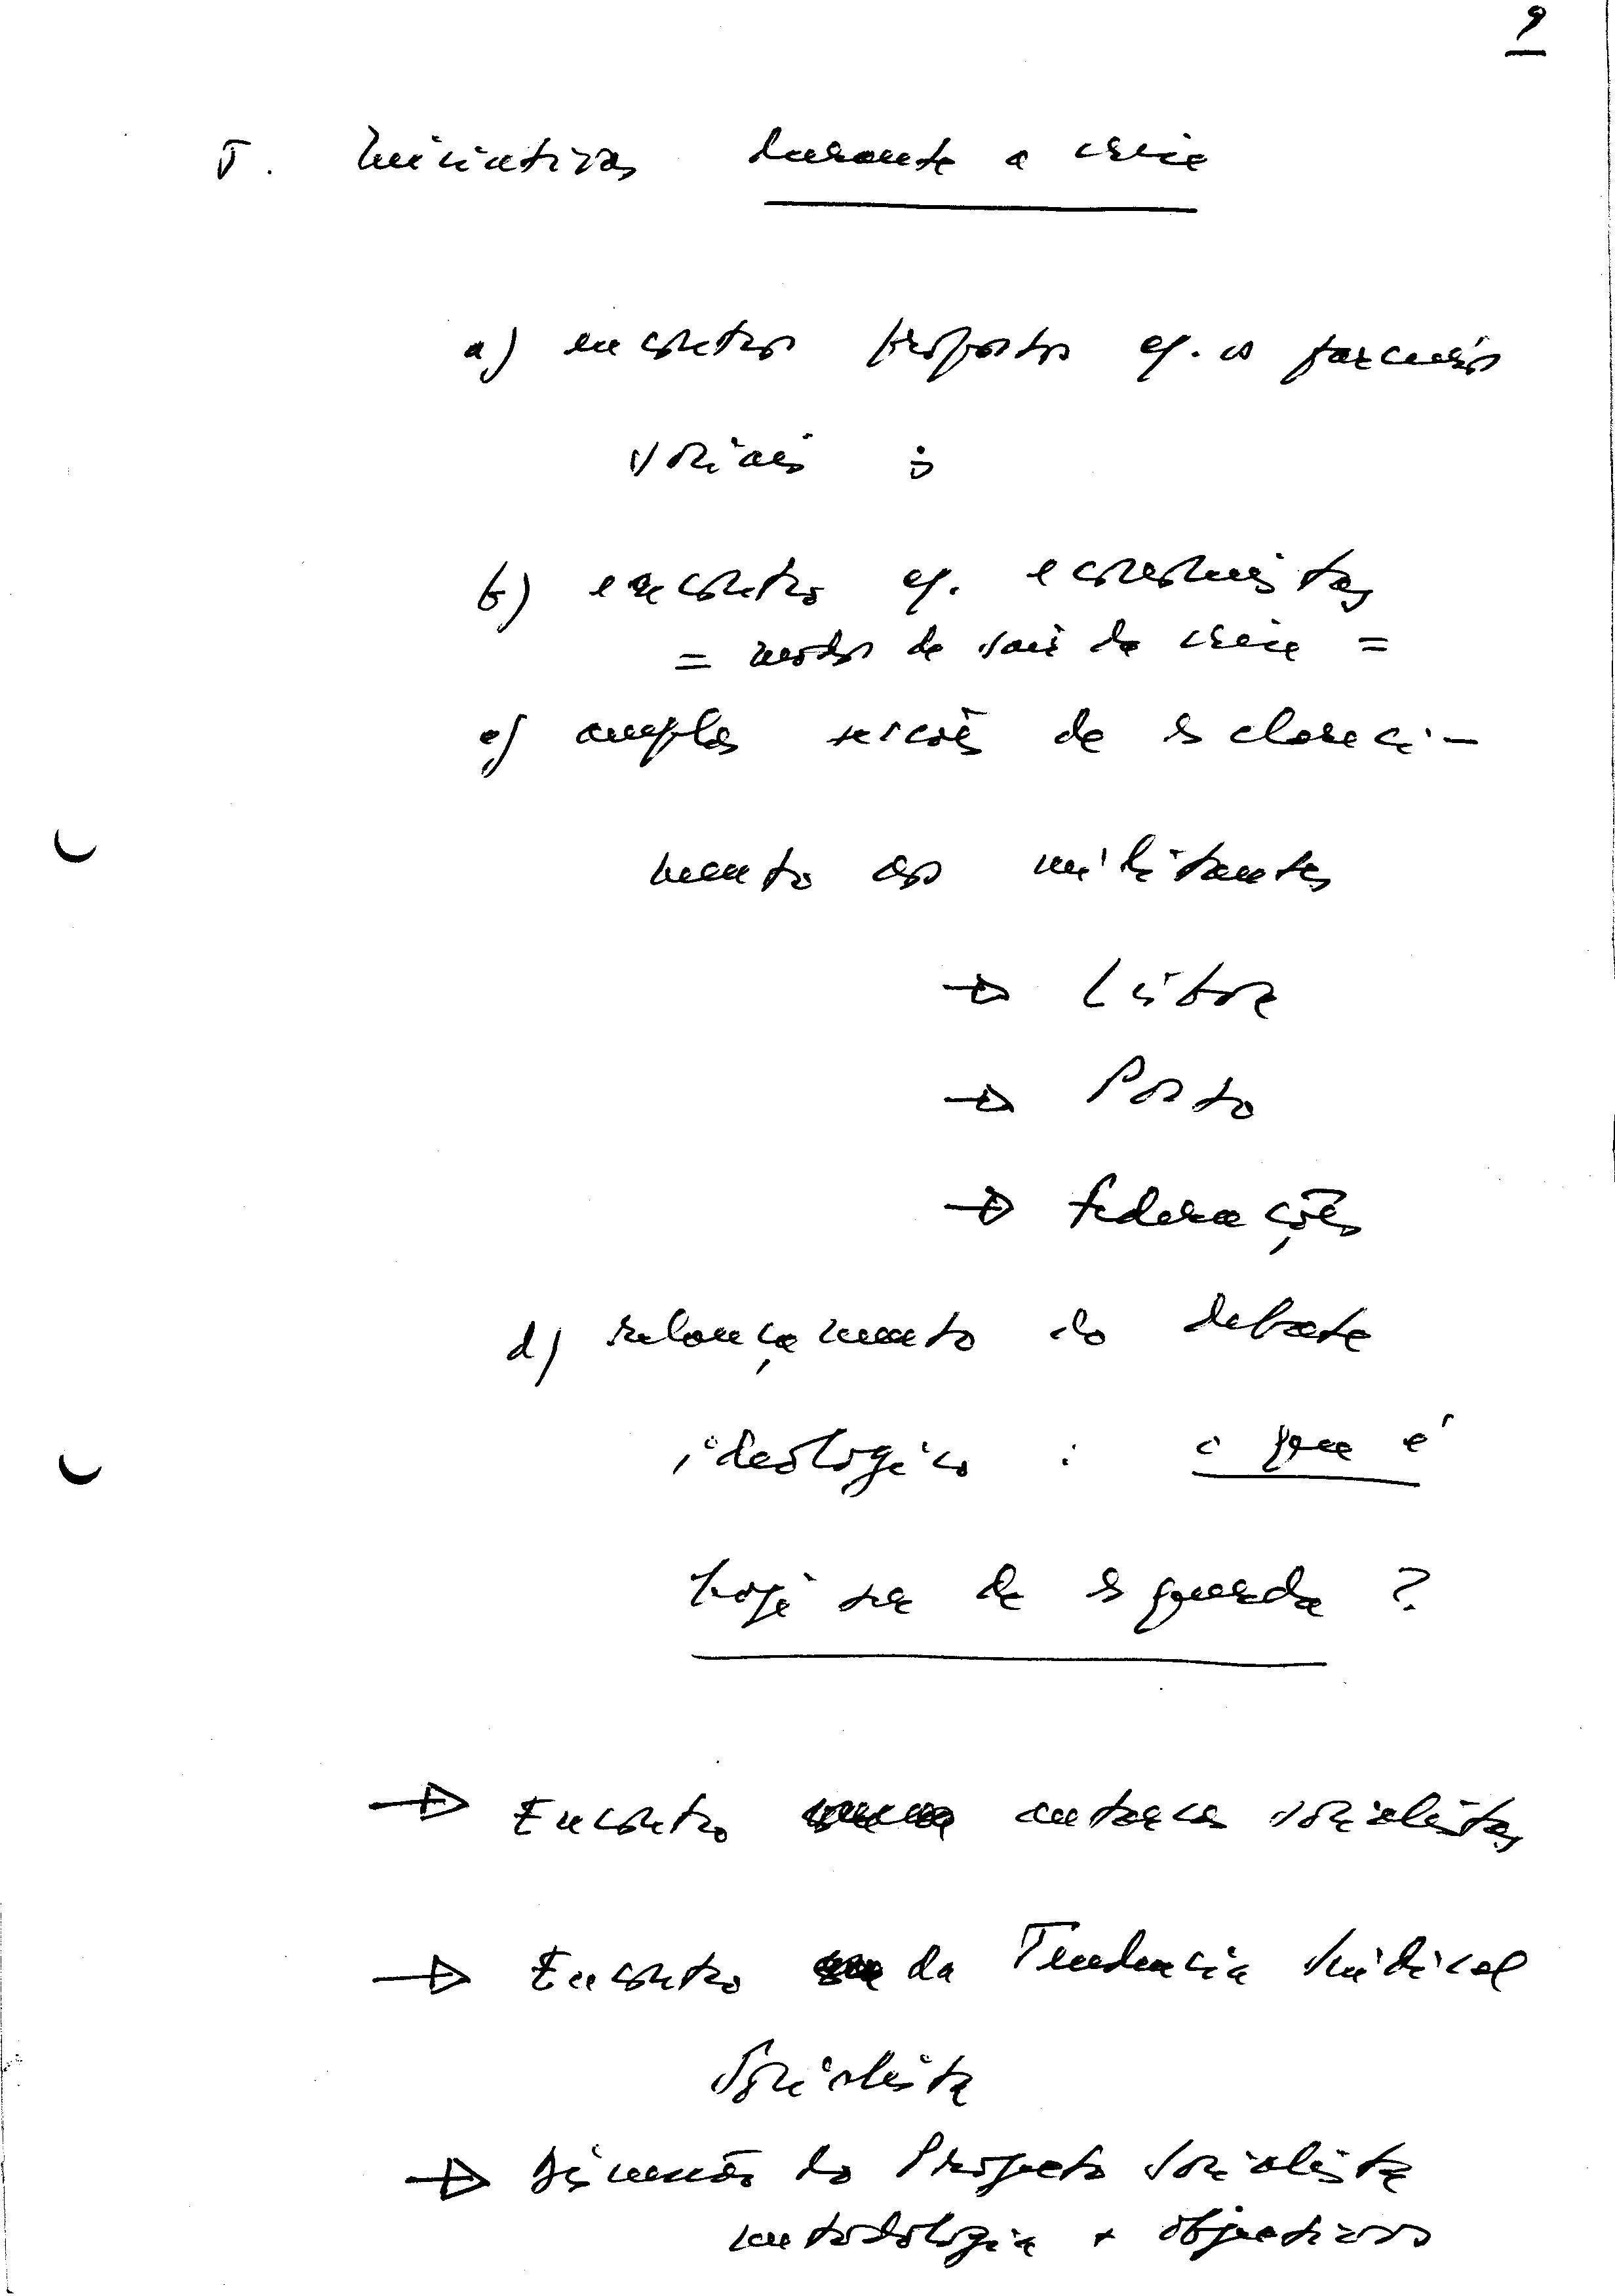 9
V. Iniciativas durante a crise
a) encontros propostos c/. os parceiros
sociais ;
b) encontro c/. economistas
= modos de sair da crise =
c) amplas sessões de esclareci-
mento aos militantes
→ Lisboa
→ Porto
→ Federações
d) relançamento do debate
ideologico : o que é
hoje ser de esquerda ?
→ Encontro autarcas socialistas
→ Encontro da Tendencia Sindical
Socialista
→ Discussão do Projecto Socialista
metodologia + objectivos